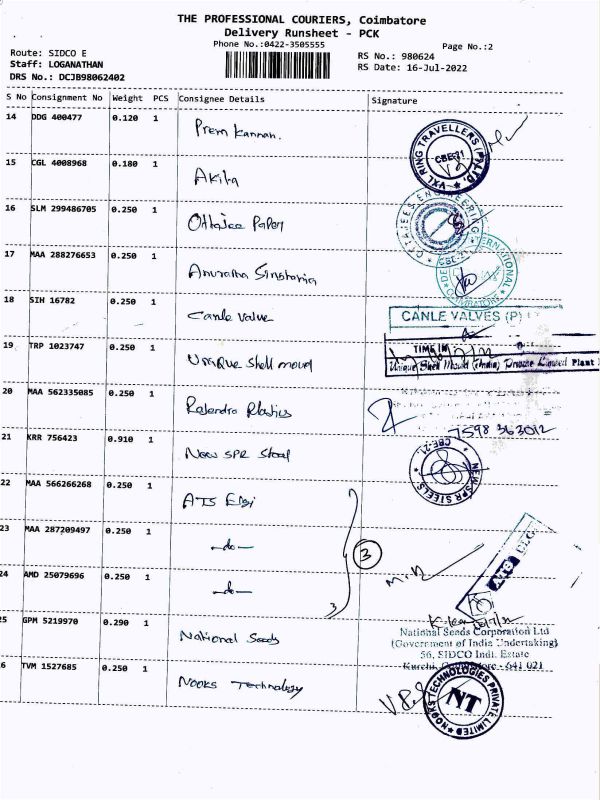 THE PROFESSIONAL COURIERS, Coimbatore
Delivery Runsheet - PCK
Phone No.:0422-3505555
Page No.:2
Route: SIDCO E
Staff: LOGANATHAN
DRS No.: DCJB98062402
RS No.: 980624
RS Date: 16-Jul-2022
S No Consignment No Weight PCS Consignee Details Signature
14 DDG 400477 0.120 1 Prem Kannan.
VXL RING TRAVELLERS (P) LTD. CBE-21
15 CGL 4008968 0.180 1 Akila
16 SLM 299486705 0.250 1 Ottajee Paper
OTTAJEES ENGINEERING CBE-21
17 MAA 288276653 0.250 1 Anuratha
INTERNATIONAL COIMBATORE
18 SIH 16782 0.250 1 Canle valve
CANLE VALVES (P)
19 TRP 1023747 0.250 1 Unique Shell mould
TIME IN
Unique Shell Mould (India) Private Limited Plant
20 MAA 562335085 0.250 1 Rajendra Plastics
7598 363012
21 KRR 756423 0.910 1 New SPR Steel
NEW SPR STEELS CBE-21.
22 MAA 566266268 0.250 1 ATS Elgi
23 MAA 287209497 0.250 1 -do-
3
24 AMD 25079696 0.250 1 -do-
3
25 GPM 5219970 0.290 1 National Seeds
National Seeds Corporation Ltd
(Government of India Undertaking)
56, SIDCO Indl. Estate
Kurchi, Coimbatore - 641 021
26 TVM 1527685 0.250 1 Nooks Technology
NOOKS TECHNOLOGIES PRIVATE LIMITED
NT